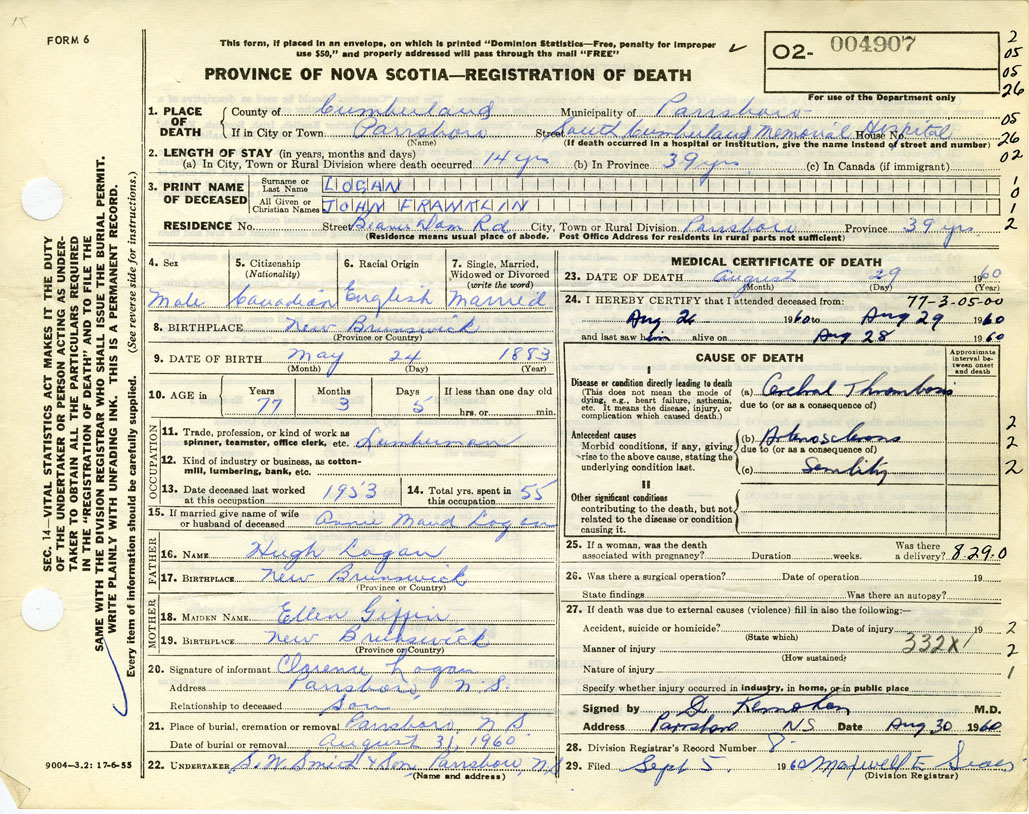 FORM 6
This form, if placed in an envelope, on which is printed "Dominion Statistics—Free, penalty for improper
use $50," and properly addressed will pass through the mail "FREE"
PROVINCE OF NOVA SCOTIA—REGISTRATION OF DEATH
O2- 004907
For use of the Department only
2
05
05
26
05
26
02
1
0
1
2
SEC. 14—VITAL STATISTICS ACT MAKES IT THE DUTY
OF THE UNDERTAKER OR PERSON ACTING AS UNDER-
TAKER TO OBTAIN ALL THE PARTICULARS REQUIRED
IN THE "REGISTRATION OF DEATH" AND TO FILE THE
SAME WITH THE DIVISION REGISTRAR WHO SHALL ISSUE THE BURIAL PERMIT.
WRITE PLAINLY WITH UNFADING INK. THIS IS A PERMANENT RECORD.
Every item of information should be carefully supplied. (See reverse side for instructions.)
1. PLACE OF DEATH County of Cumberland Municipality of Parrsboro
If in City or Town Parrsboro Street South Cumberland Memorial Hospital House No.
(Name) (If death occurred in a hospital or institution, give the name instead of street and number)
2. LENGTH OF STAY (in years, months and days)
(a) In City, Town or Rural Division where death occurred 14 yrs (b) In Province 39 yrs. (c) In Canada (if immigrant)
3. PRINT NAME OF DECEASED Surname or Last Name LOGAN
All Given or Christian Names JOHN FRANKLIN
RESIDENCE No. Street Beaver Dam Rd City, Town or Rural Division Parrsboro Province 39 yrs.
(Residence means usual place of abode. Post Office Address for residents in rural parts not sufficient)
4. Sex 5. Citizenship (Nationality) 6. Racial Origin 7. Single, Married, Widowed or Divorced (write the word)
Male Canadian English Married
8. BIRTHPLACE New Brunswick
(Province or Country)
9. DATE OF BIRTH May 24 1883
(Month) (Day) (Year)
10. AGE in Years Months Days If less than one day old
77 3 5 hrs. or min.
OCCUPATION
11. Trade, profession, or kind of work as spinner, teamster, office clerk, etc. Lumberman
12. Kind of industry or business, as cotton-mill, lumbering, bank, etc.
13. Date deceased last worked at this occupation 1953 14. Total yrs. spent in this occupation 55
15. If married give name of wife or husband of deceased Annie Maud Logan
FATHER
16. NAME Hugh Logan
17. BIRTHPLACE New Brunswick
(Province or Country)
MOTHER
18. MAIDEN NAME Ellen Giffin
19. BIRTHPLACE New Brunswick
(Province or Country)
20. Signature of informant Clarence Logan
Address Parrsboro, N.S.
Relationship to deceased Son
21. Place of burial, cremation or removal Parrsboro, N.S.
Date of burial or removal August 31, 1960
22. UNDERTAKER S.W. Smith & Son Parrsboro, N.S
(Name and address)
9004—3.2: 17-6-55
MEDICAL CERTIFICATE OF DEATH
23. DATE OF DEATH August 29 1960
(Month) (Day) (Year)
24. I HEREBY CERTIFY that I attended deceased from: 77-3-05-00
Aug 26 1960 to Aug 29 1960
and last saw him alive on Aug 28 1960
CAUSE OF DEATH
Approximate interval between onset and death
I
Disease or condition directly leading to death
(This does not mean the mode of dying, e.g., heart failure, asthenia, etc. It means the disease, injury, or complication which caused death.)
(a) Cerebral Thrombosis
due to (or as a consequence of)
Antecedent causes
Morbid conditions, if any, giving rise to the above cause, stating the underlying condition last.
(b) Arteriosclerosis
due to (or as a consequence of)
(c) Senility
2
2
2
II
Other significant conditions
contributing to the death, but not related to the disease or condition causing it.
25. If a woman, was the death associated with pregnancy? Duration weeks. Was there a delivery? 8.29.0
26. Was there a surgical operation? Date of operation 19
State findings Was there an autopsy?
27. If death was due to external causes (violence) fill in also the following:—
Accident, suicide or homicide? Date of injury 19 2
(State which)
Manner of injury 332X 2
(How sustained)
Nature of injury 1
Specify whether injury occurred in industry, in home, or in public place
Signed by M.D.
Address Parrsboro N.S. Date Aug 30 1960
28. Division Registrar's Record Number 8
29. Filed Sept 5, 1960 Maxwell E
(Division Registrar)